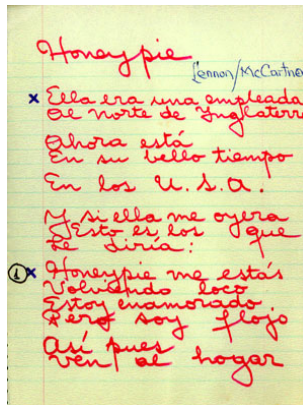 Honeypie
Lennon/McCartney
x Ella era una empleada
Al norte de Inglaterr
Ahora está
En su bello tiempo
En los U.S.A.
Y si ella me oyera
Esto es los que
Le diría:
1 x Honeypie me estás
Volviendo loco
Estoy enamorado
Pero soy flojo
Así pues
Ven al hogar